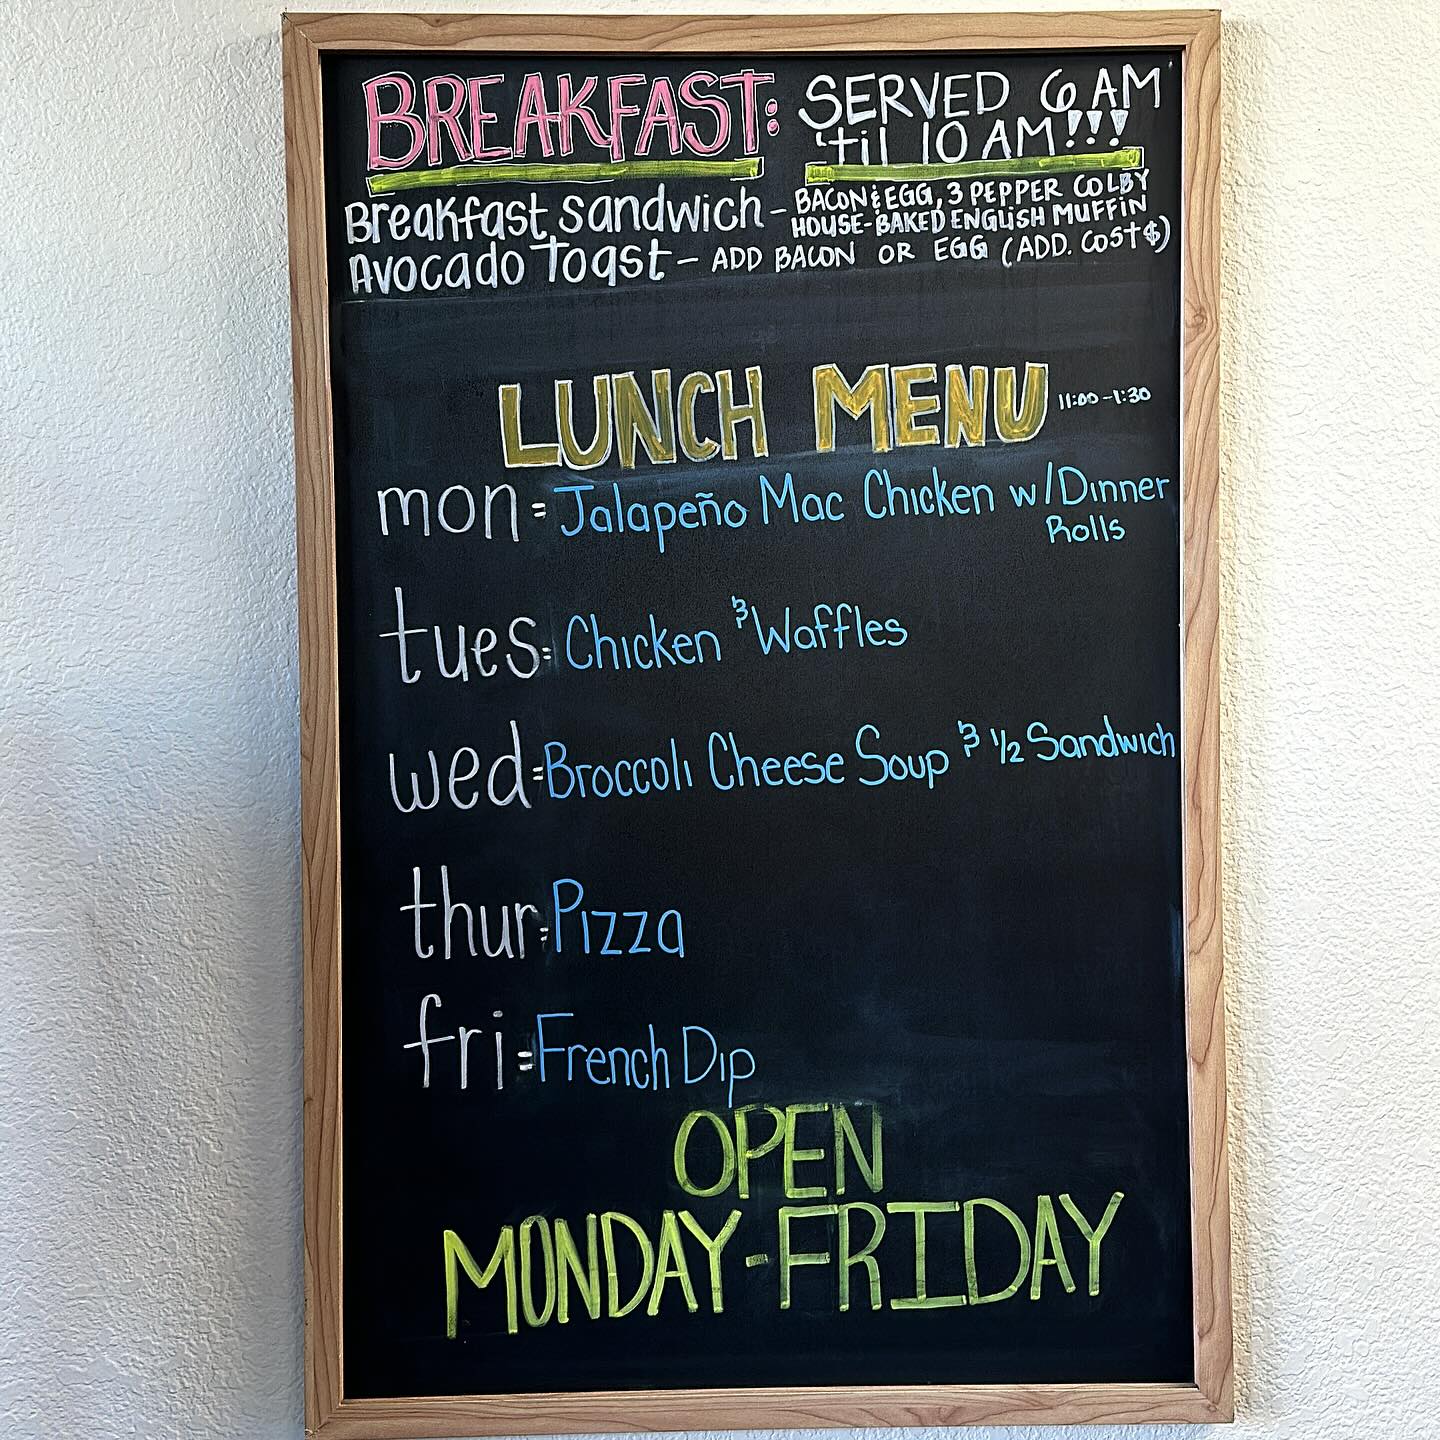 BREAKFAST: SERVED 6 AM
'til 10 AM!!!
Breakfast sandwich - BACON & EGG, 3 PEPPER COLBY
HOUSE-BAKED ENGLISH MUFFIN
Avocado Toast - ADD BACON OR EGG (ADD. COST $)
LUNCH MENU 11:00-1:30
mon = Jalapeño Mac Chicken w/Dinner
Rolls
tues = Chicken & Waffles
wed = Broccoli Cheese Soup & 1/2 Sandwich
thur = Pizza
fri = French Dip
OPEN
MONDAY-FRIDAY